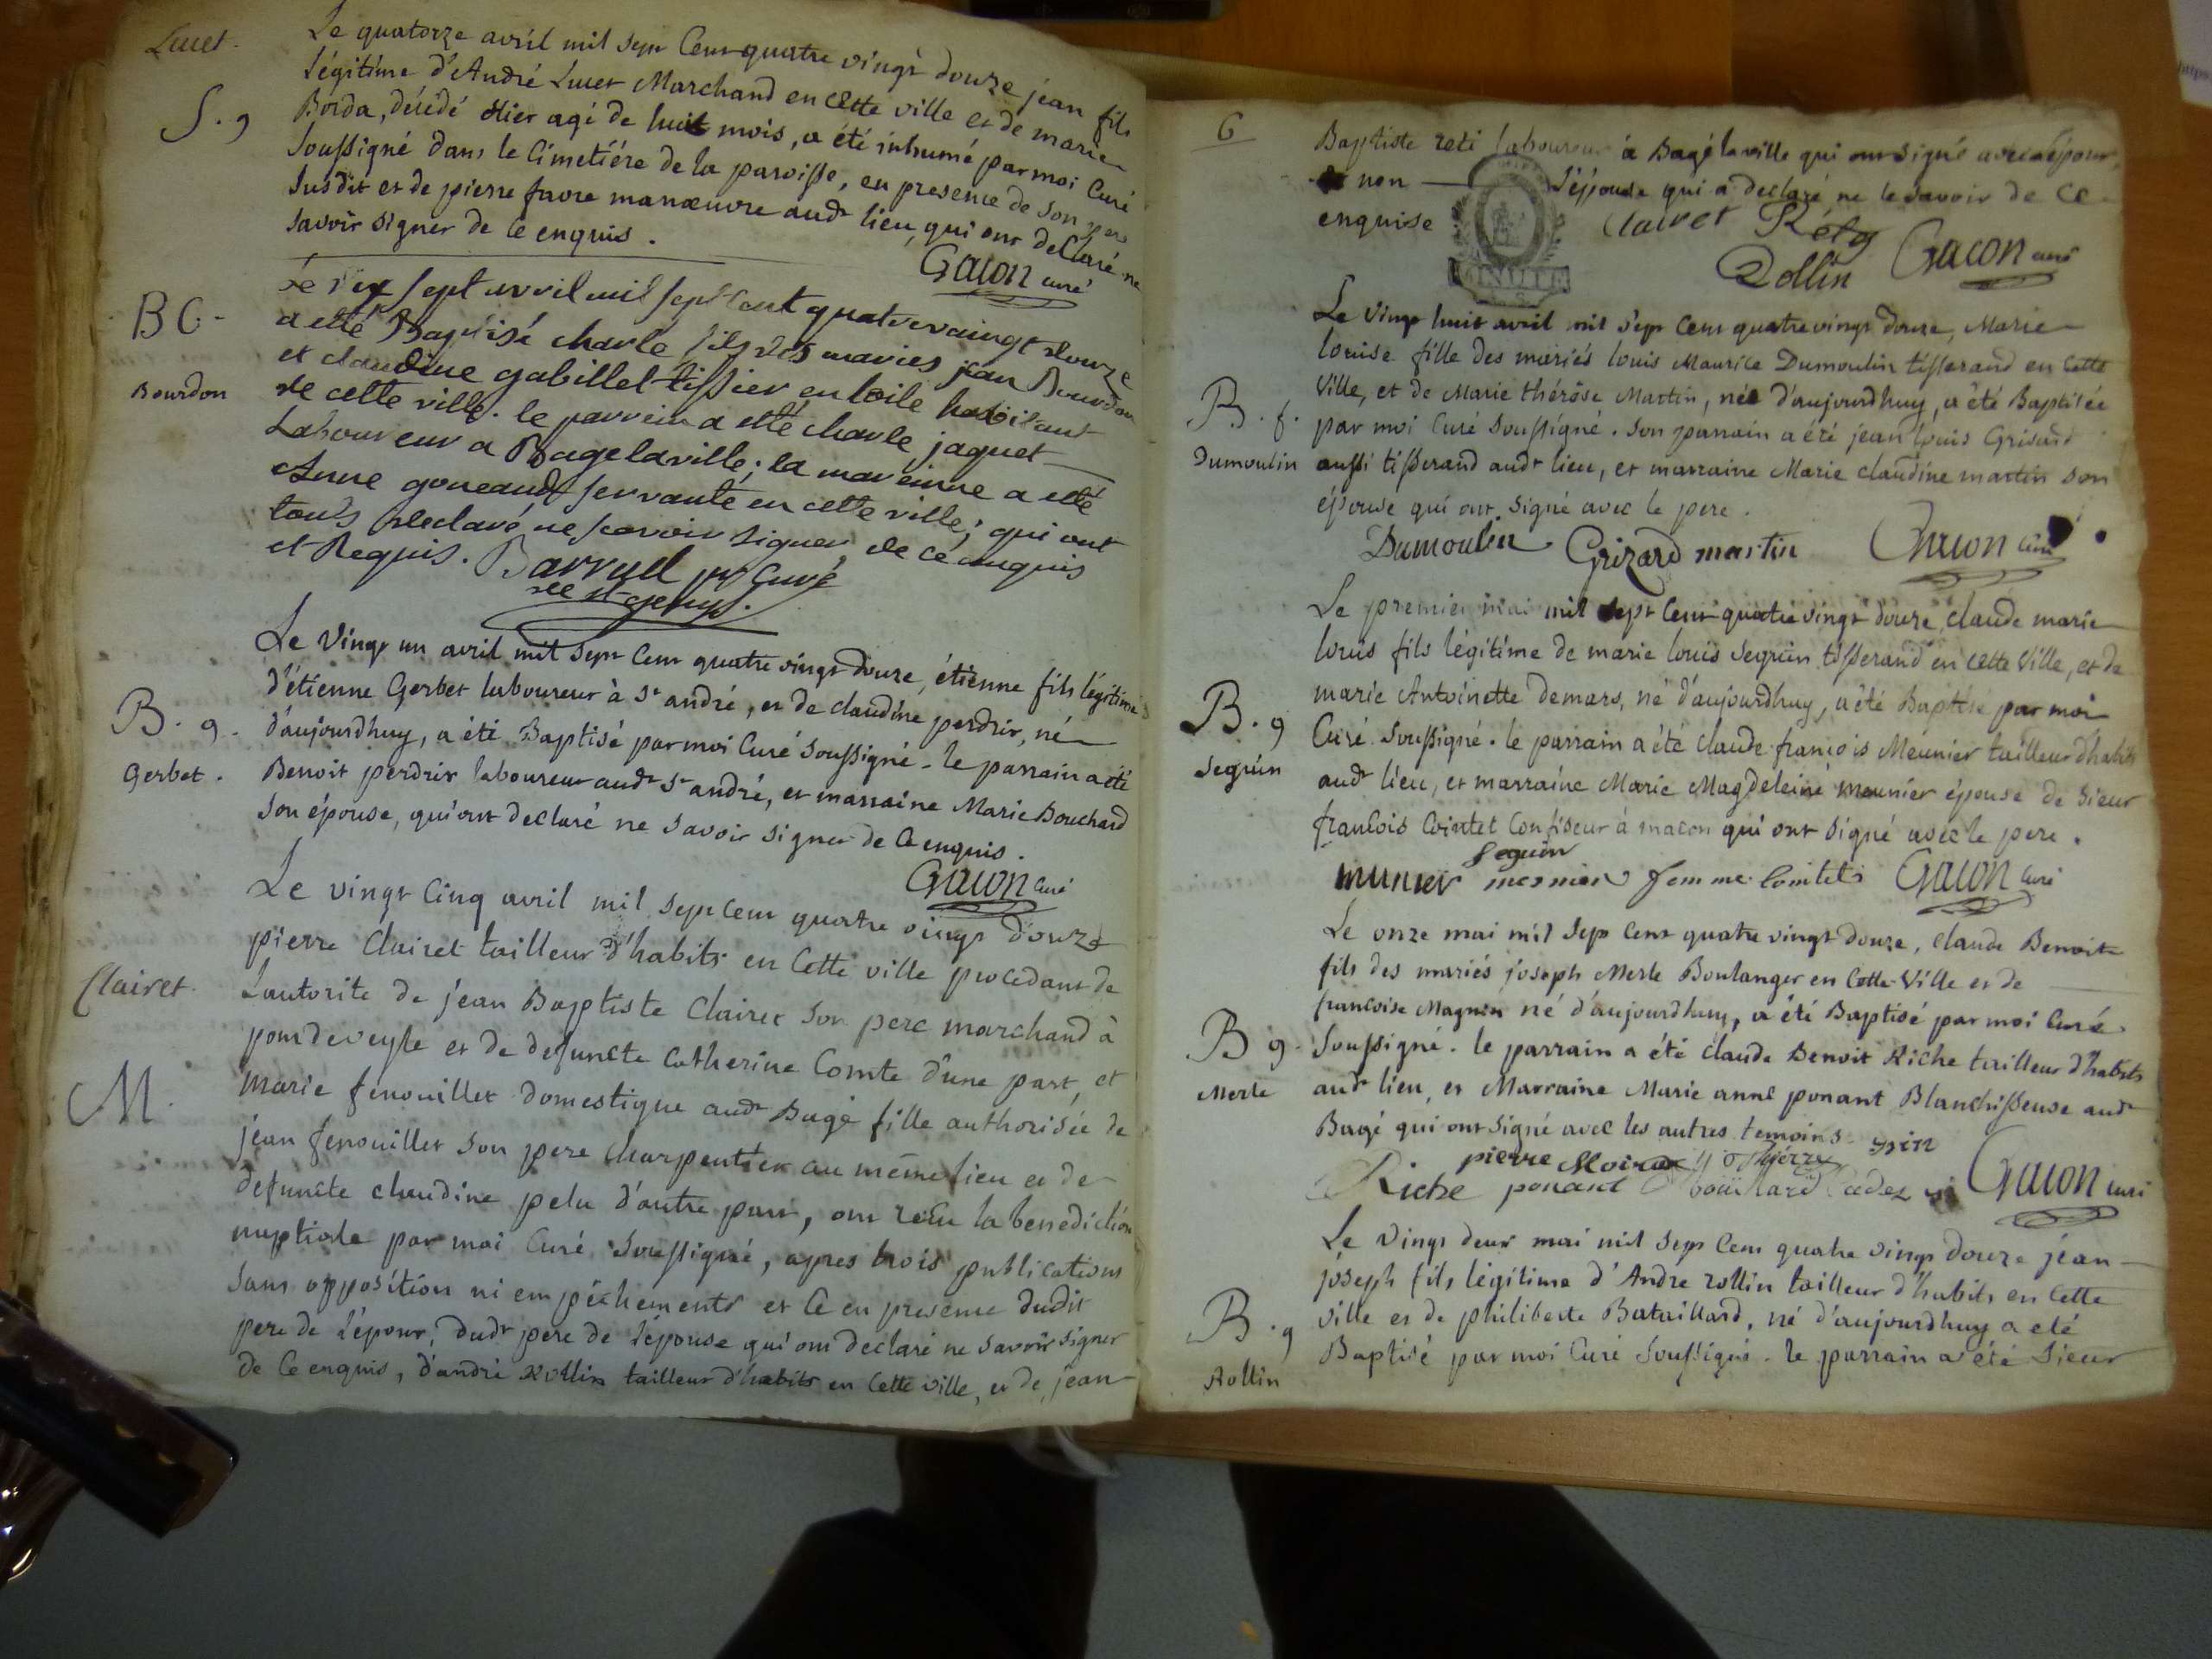 Lucet.
Le quatorze avril mil sept Cent quatre vingt douze jean fils
légitime d'André Lucet Marchand en cette ville et de marie
S. g
Borda, décédé hier agé de huit mois, a été inhumé par moi Curé
soussigné dans le Cimetiére de la paroisse, en presence de son pere
susdit et de pierre favre manœuvre audt lieu, qui ont declaré ne
savoir signer de ce enquis.
Gacon curé
BG-
Le dix sept avril mil sept cent quatre vaingt douze
a etté Baptisé charle fils des maries jean Bourdon
Bourdon
et claudine gabillet tissier en toile habitant
de cette ville. le parrein a etté charle jaquet
Laboureur a Bagelaville; la mareinne a etté
Anne goneaud servante en cette ville; qui ont
touts declaré ne scavoir signer de ce enquis
et Requis. Barrud curé
de st
Le vingt un avril mil sept Cent quatre vingt douze, étienne fils légitime
d'étienne Gerbet laboureur à st andré, et de claudine perdrix, né
B. g.
d'aujourdhuy, a été Baptisé par moi Curé soussigné - le parrain a été
Gerbet.
Benoit perdrix laboureur audt st andré, et marraine Marie Bouchard
son épouse, qui ont declaré ne savoir signer de ce enquis.
Gacon Curé
Le vingt Cinq avril mil sept Cent quatre vingt douze
pierre Clairet tailleur d'habits en Cette ville procedant de
Clairet.
L'autorite de jean Baptiste Clairet son pere marchand à
pondeveyle et de defuncte Catherine Comte d'une part, et
M.
Marie fenouillet domestique audt Bagé fille authorisée de
jean fenouillet son pere charpentier au même lieu et de
defuncte claudine pelu d'autre part, ont reçu la benediction
nuptiale par moi Curé soussigné, apres trois publications
sans opposition ni empêchements et ce en presence dudit
pere de l'époux, dudt pere de l'épouse qui ont declaré ne savoir signer
de ce enquis, d'andré Rollin tailleur d'habits en cette ville, et de jean
6
Baptiste reti laboureur à Bagé laville qui ont signé avec l'époux,
et non l'épouse qui a declaré ne le savoir de ce
enquise
MINUTE
Clairet Réty
Rollin Gacon curé
Le vingt huit avril mil sept Cent quatre vingt douze, Marie
louise fille des mariés louis Maurice Dumoulin tisserand en cette
Ville, et de Marie thérèse Martin, née d'aujourdhuy, a été Baptisée
B. f.
par moi Curé soussigné. son parrain a été jean louis Grisard
Dumoulin
aussi tisserand audt lieu, et marraine Marie claudine martin son
épouse qui ont signé avec le pere.
Dumoulin Grizard martin Gacon Curé
Le premier mai mil sept Cent quatre vingt douze, claude marie
louis fils légitime de marie louis Seguin tisserand en cette Ville, et de
marie Antoinette demars, né d'aujourdhuy, a été Baptisé par moi
B. g
Curé soussigné. le parrain a été claude françois Meunier tailleur d'habits
Seguin
audt lieu, et marraine Marie Magdeleine meunier épouse de sieur
françois Cointet Confiseur à macon qui ont signé avec le pere.
Seguin
munier femme Cointet Gacon Curé
Le onze mai mil sept Cent quatre vingt douze, claude Benoit
fils des mariés joseph Merle Boulanger en Cette Ville et de
francoise Magnin né d'aujourdhuy, a été Baptisé par moi Curé
B g.
soussigné. le parrain a été Claude Benoit Riche tailleur d'habits
Merle
audt lieu, et Marraine Marie anne ponant Blanchisseuse audt
Bagé qui ont signé avec les autres temoins.
pierre
Riche ponant Gacon curé
Le vingt deux mai mil sept Cent quatre vingt douze jean
joseph fils légitime d'André rollin tailleur d'habits en Cette
B. g
ville et de philiberte Bataillard, né d'aujourdhuy a été
Baptisé par moi Curé soussigné. le parrain a été Sieur
Rollin